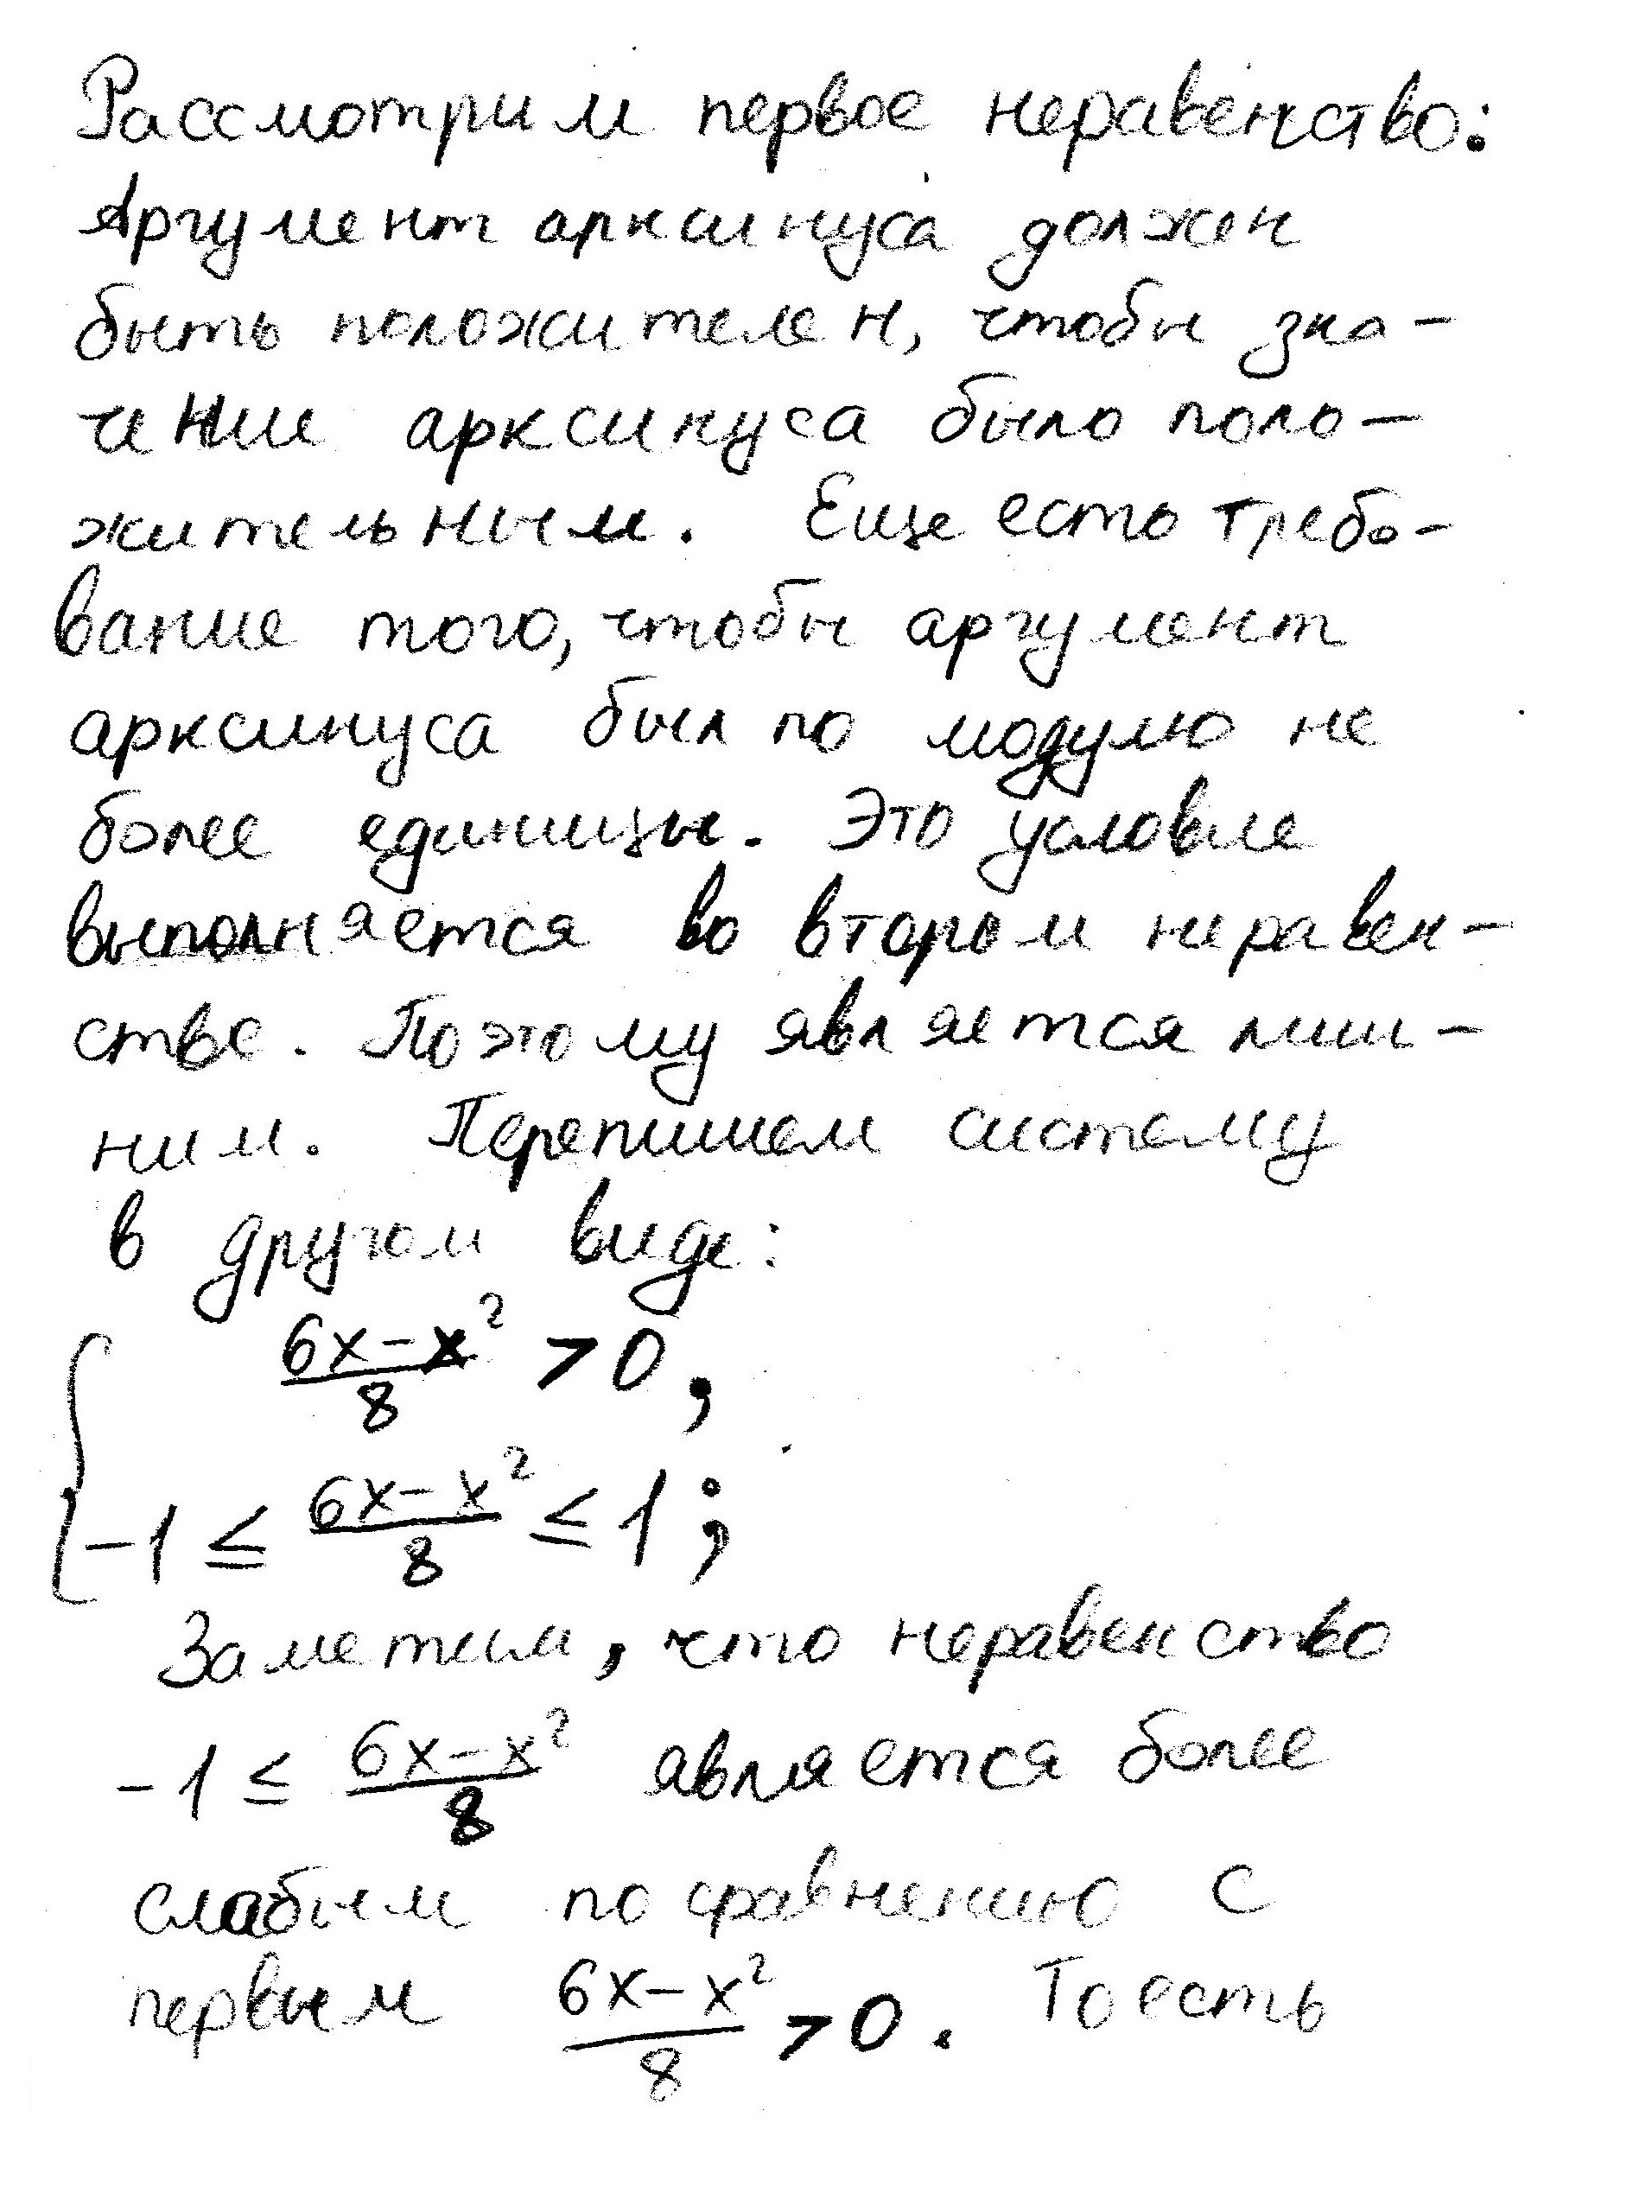 Рассмотрим первое неравенство:
Аргумент арксинуса должен
быть положителен, чтобы зна-
чение арксинуса было поло-
жительным. Еще есть требо-
вание того, чтобы аргумент
арксинуса был по модулю не
более единицы. Это условие
выполняется во втором неравен-
стве. Поэтому является лиш-
ним. Перепишем систему
в другом виде:
{ (6x-x²)/8 > 0,
-1 ≤ (6x-x²)/8 ≤ 1;
Заметим, что неравенство
-1 ≤ (6x-x²)/8 является более
слабым по сравнению с
первым (6x-x²)/8 > 0. То есть